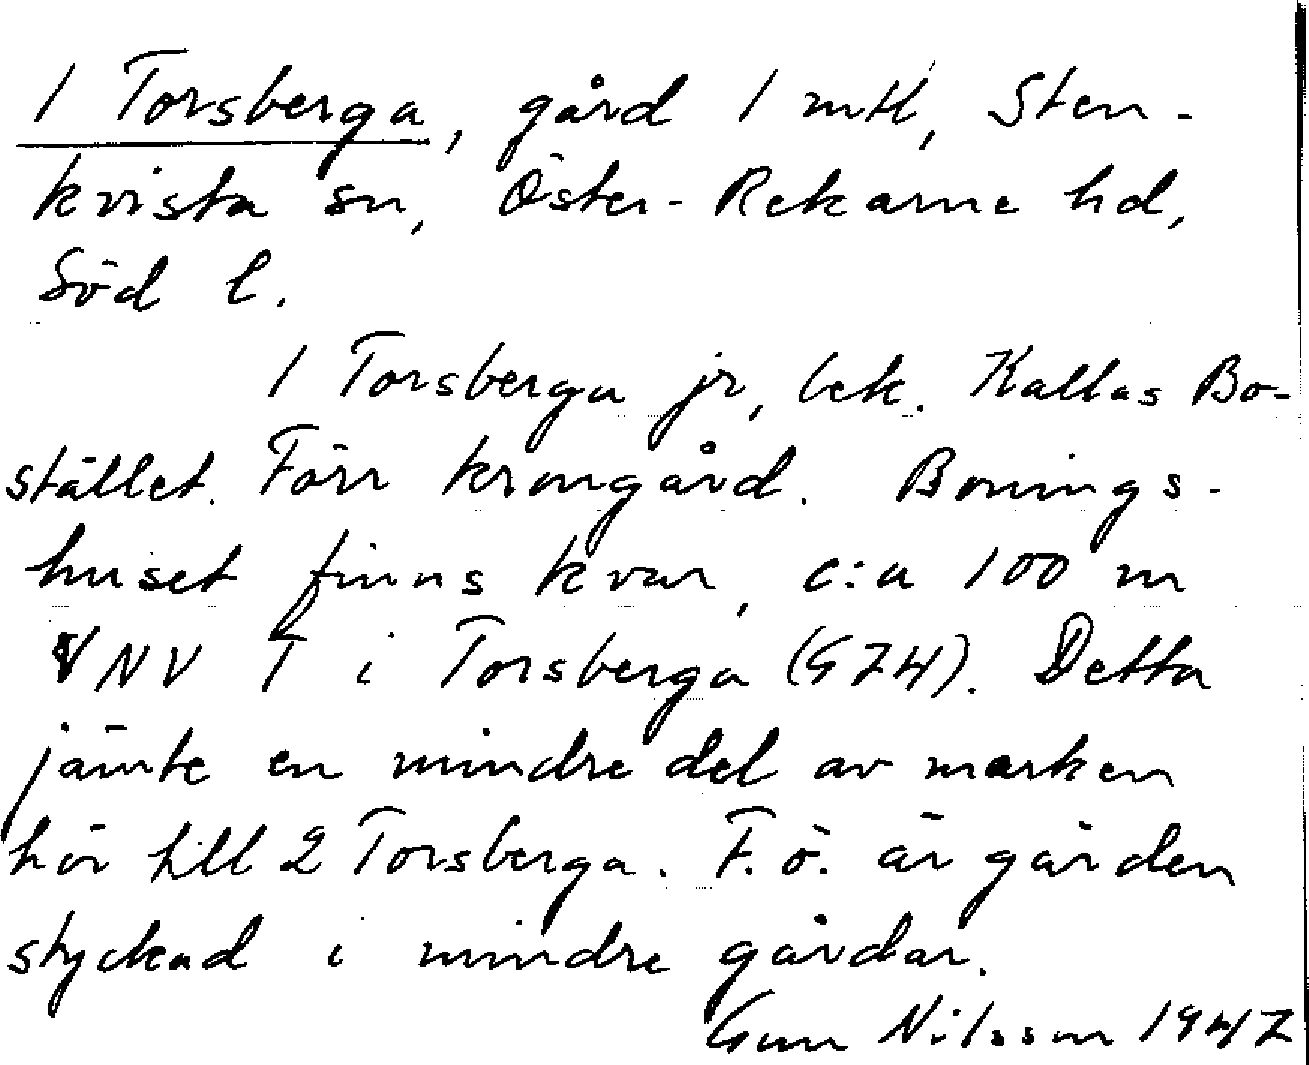 1 Torsberga, gård 1 mtl, Sten-
kvista sn, Öster-Rekarne hd,
Söd l.
1 Torsberga jr, bek. Kallas Bo-
stället. Förr krongård. Bonings-
huset finns kvar, c:a 100 m
VNV T i Torsberga (G74). Detta
jämte en mindre del av marken
hör till 2 Torsberga. F.ö. är gården
styckad i mindre gårdar.
Gun Nilsson 1947